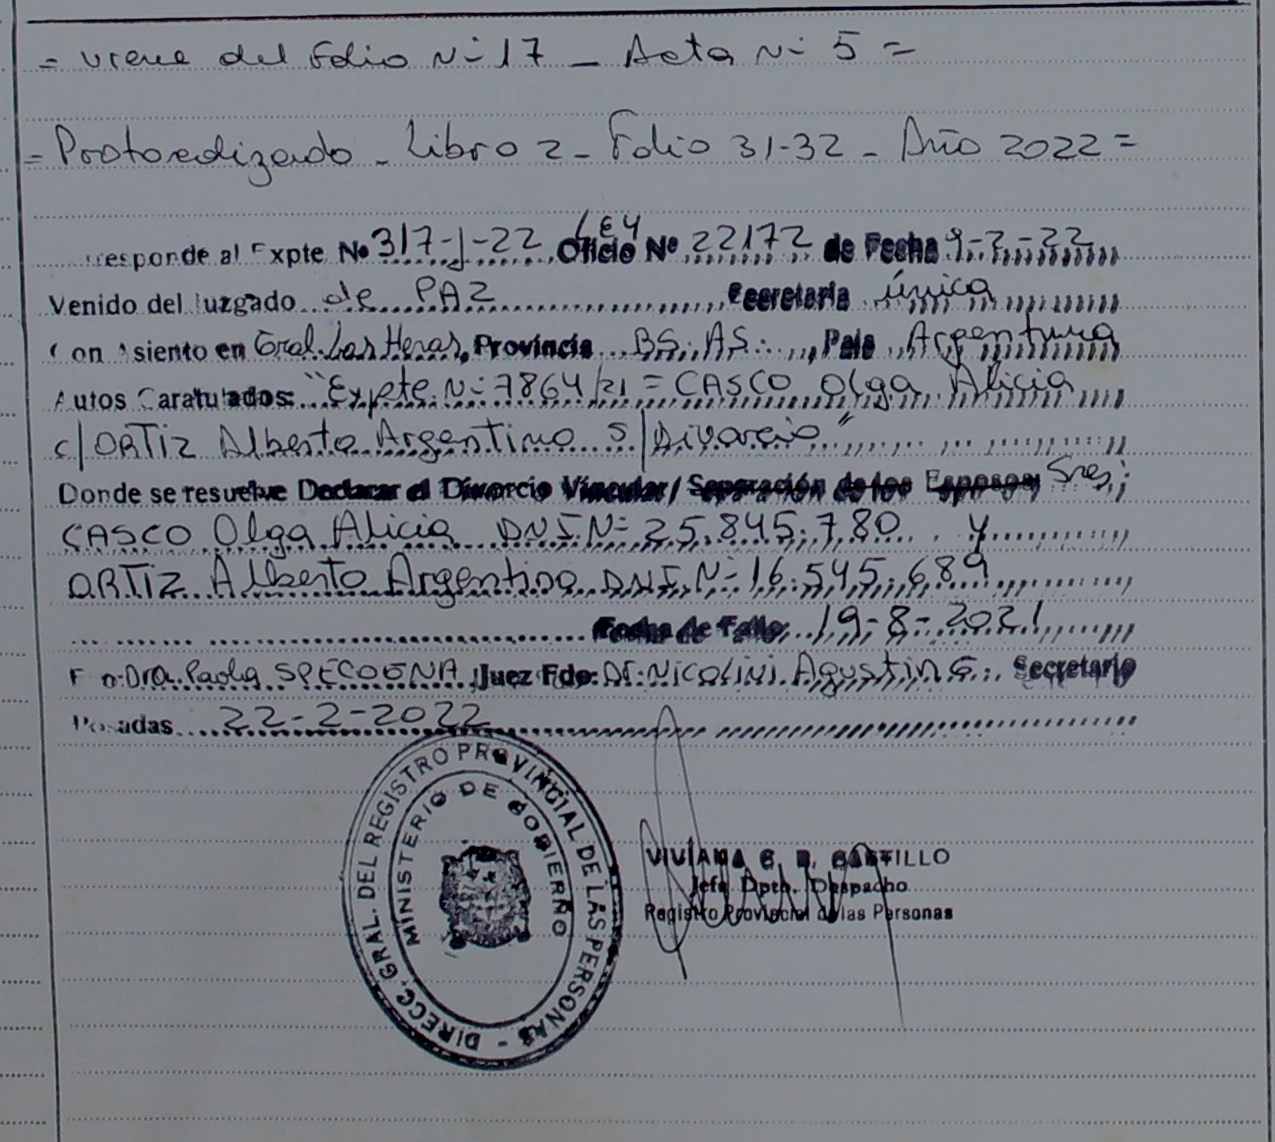 = viene del Folio N= 17 _ Acta N= 5 =
= Protocolizado - Libro 2 - Folio 31-32 - Año 2022 =
rresponde al Expte Nº 317-J-22 Oficio LEY Nº 22172 de Fecha 9-2-22
Venido del Juzgado de PAZ Secretaria única
Con Asiento en Gral. Las Heras, Provincia BS. AS. Pais Argentina
Autos Caratulados: "Expte. N= 7864/21 = CASCO Olga Alicia
c/ ORTIZ Alberto Argentino S/ Divorcio"
Donde se resuelve Declarar el Divorcio Vincular / Separación de los Esposos Sres;
CASCO Olga Alicia DNI. N= 25.845.780 y
ORTIZ Alberto Argentino DNI. N= 16.545.689
Fecha de Fallo: 19-8-2021
Dra. Paola SPECOGNA Juez Fdo: Dr. NICOLINI Agustin G. Secretario
Posadas 22-2-2022
DIRECC. GRAL. DEL REGISTRO PROVINCIAL DE LAS PERSONAS -
MINISTERIO DE GOBIERNO
VIVIANA E. R. CASTILLO
Jefa Dpto. Despacho
Registro Provincial de las Personas